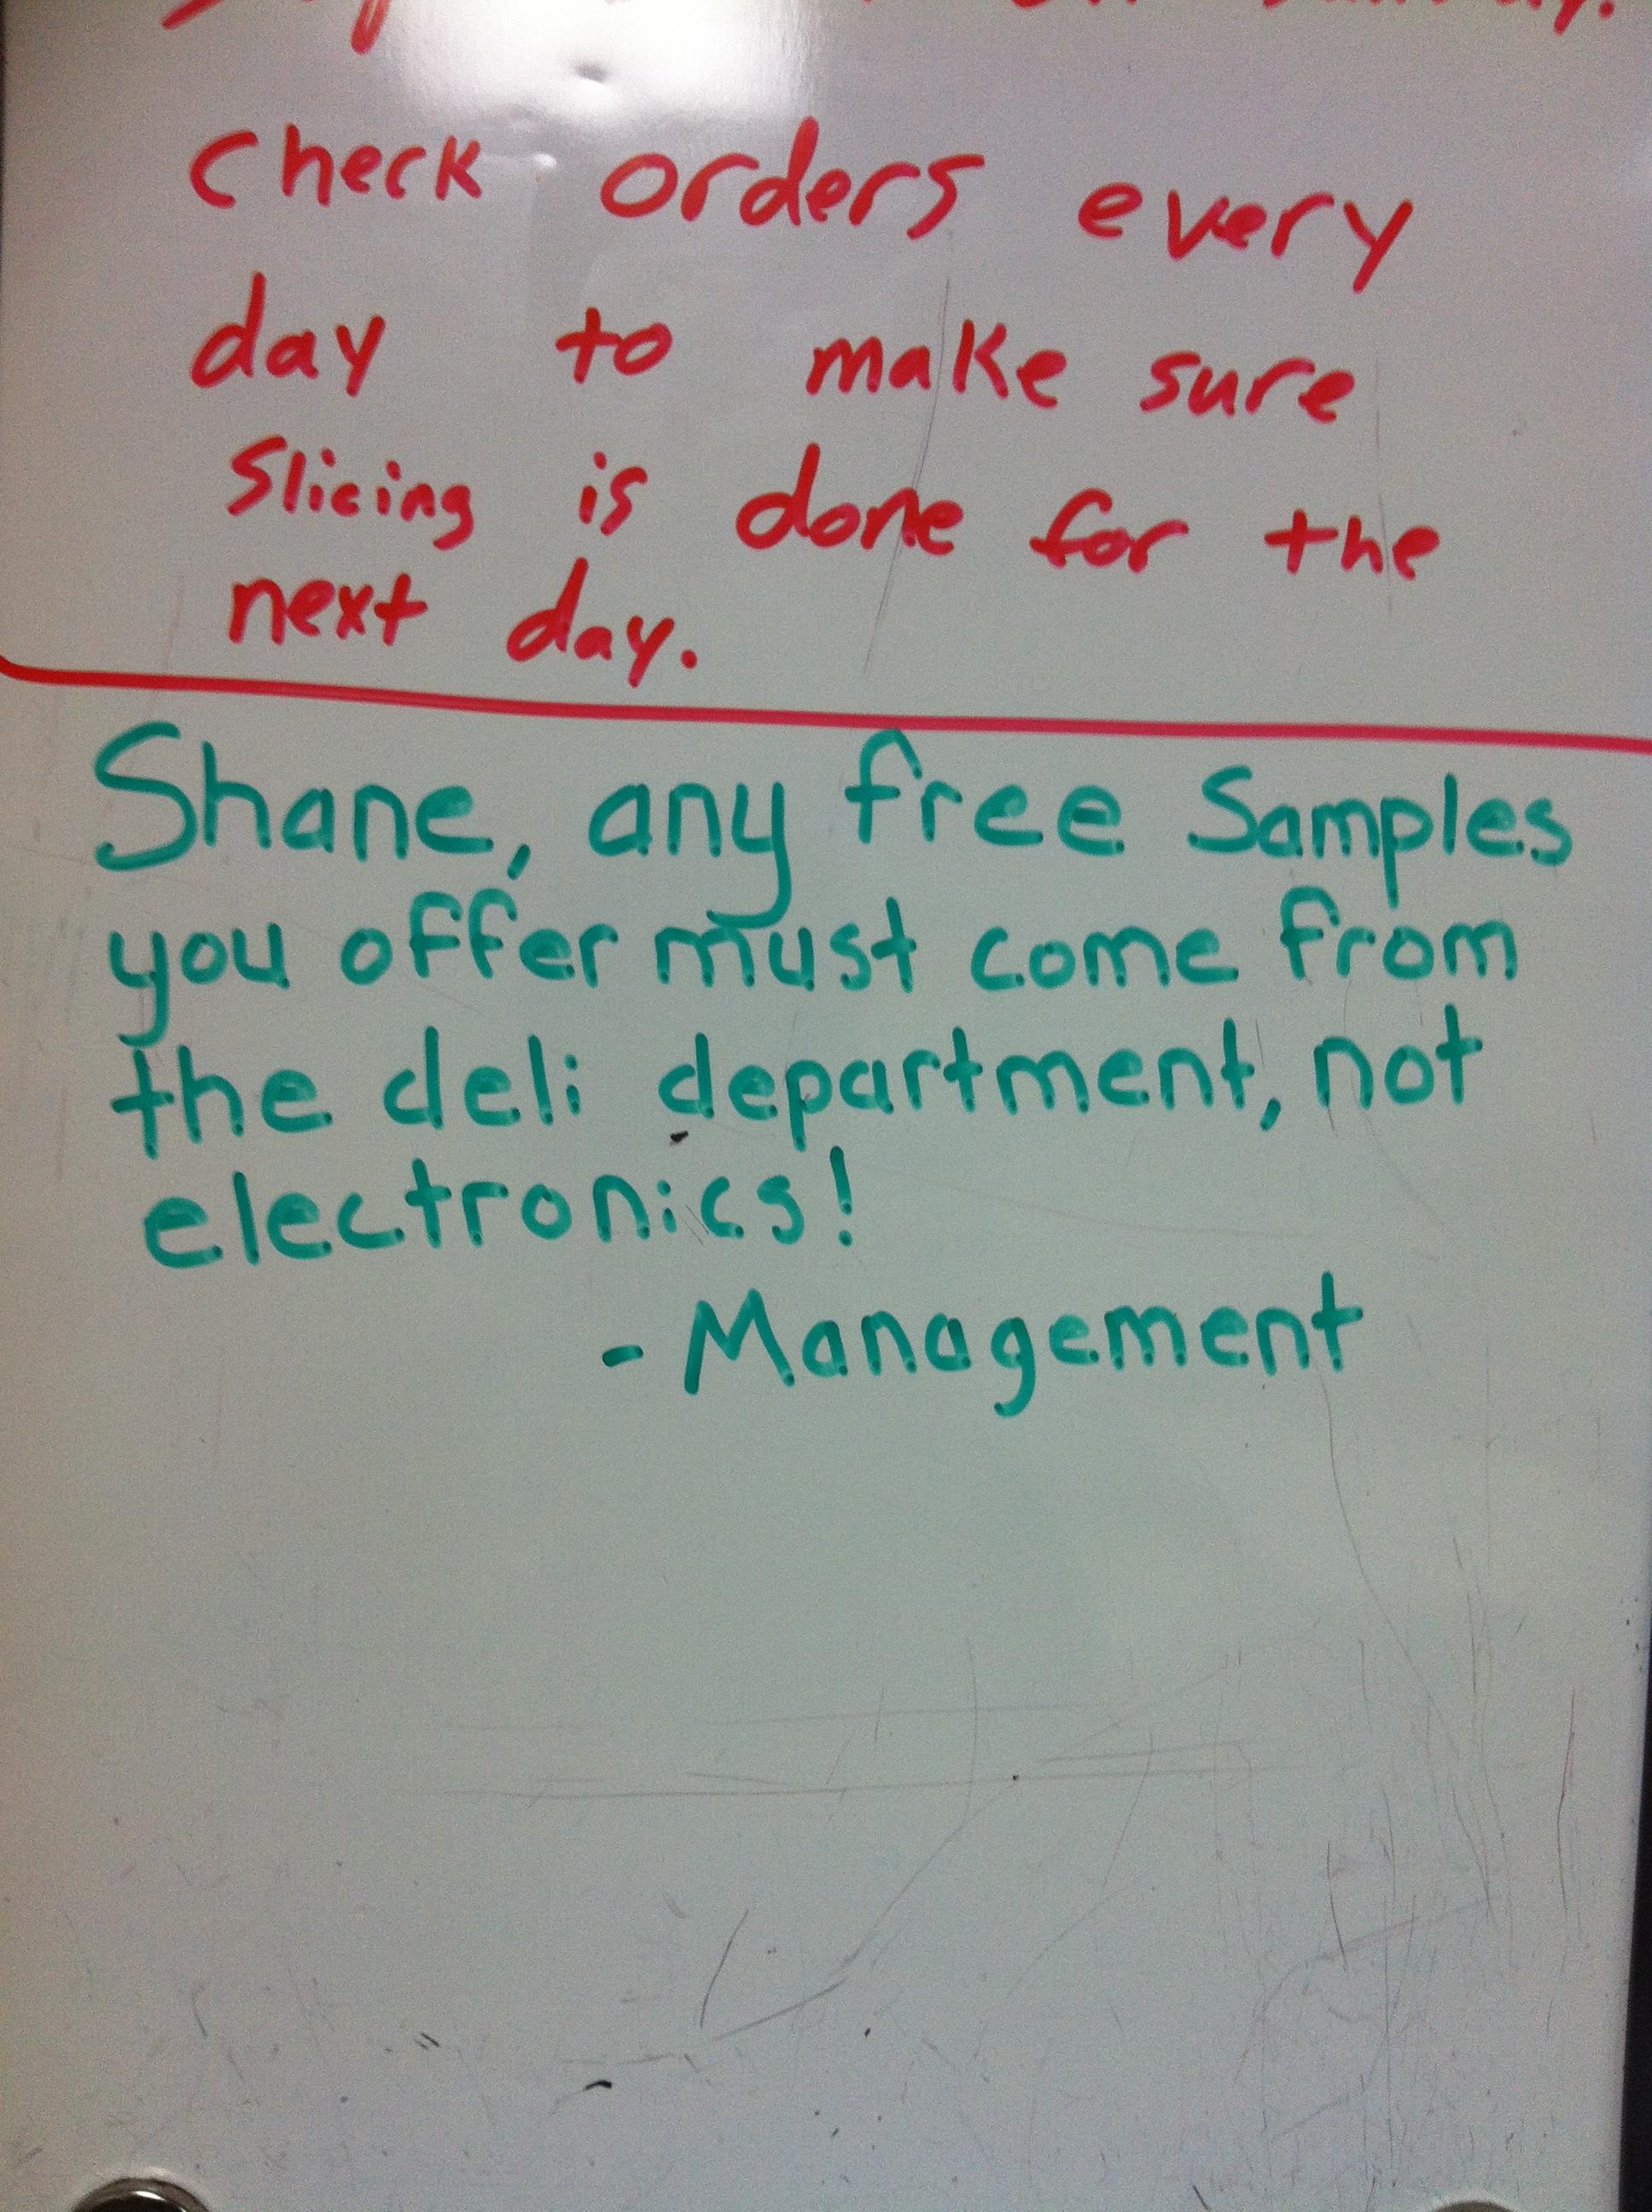 check orders every
day to make sure
slicing is done for the
next day.
Shane, any free samples
you offer must come from
the deli department, not
electronics!
- Management